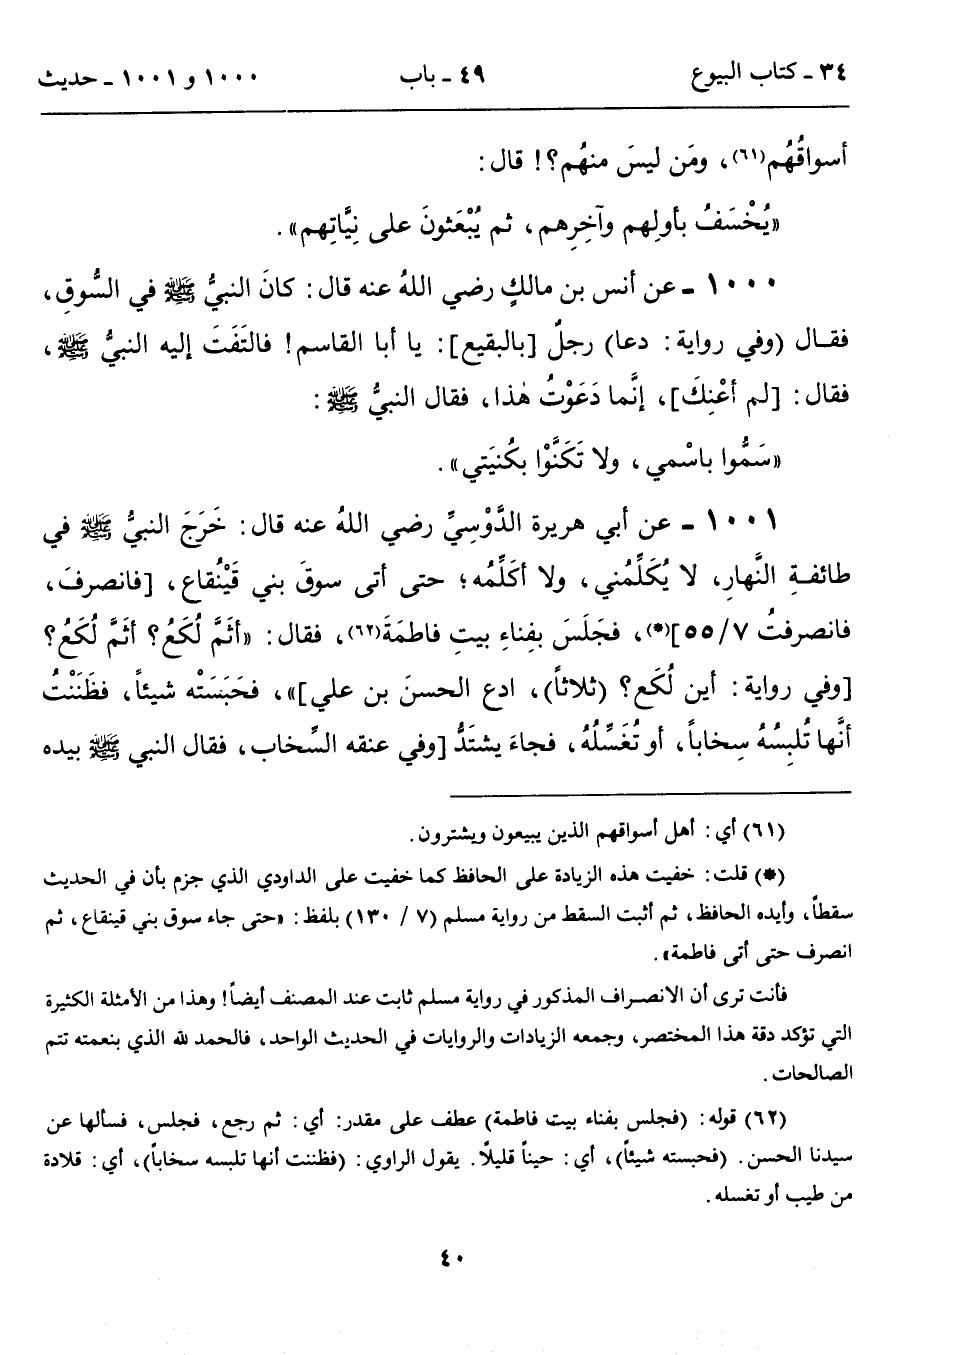 ٣٤ ـ كتاب البيوع ٤٩ ـ باب ١٠٠٠ و ١٠٠١ ـ حديث
أسواقُهُم(٦١)، ومَن ليسَ منهُم؟! قال:
«يُخْسَفُ بأولِهم وآخِرِهم، ثم يُبْعَثونَ على نِيَّاتِهم».
١٠٠٠ ـ عن أنس بن مالكٍ رضي اللهُ عنه قال: كانَ النبيُّ ﷺ في السُّوقِ،
فقـال (وفي رواية: دعا) رجلٌ [بالبقيع]: يا أبا القاسم! فالتَفَتَ إليه النبيُّ ﷺ،
فقال: [لم أعْنِكَ]، إنَّما دَعَوْتُ هٰذا، فقال النبيُّ ﷺ:
«سَمُّوا باسْمي، ولا تَكَنَّوْا بكُنيَتي».
١٠٠١ ـ عن أبي هريرة الدَّوْسِيِّ رضي اللهُ عنه قال: خَرَجَ النبيُّ ﷺ في
طائفـةِ النَّهارِ، لا يُكَلِّمُني، ولا أكَلِّمُه؛ حتى أتى سوقَ بني قَيْنُقاع، [فانصرفَ،
فانصرفتُ ٧/ ٥٥](*)، فجَلَسَ بفِناءِ بيتِ فاطمَةَ(٦٢)، فقال: «أثَمَّ لُكَعُ؟ أثَمَّ لُكَعُ؟
[وفي رواية: أين لُكَع؟ (ثلاثاً)، ادع الحسنَ بن علي]»، فحَبَسَتْه شيئاً، فظَنَنْتُ
أنَّها تُلبِسُهُ سِخاباً، أو تُغَسِّلُهُ، فجاءَ يشتَدُّ [وفي عنقه السِّخاب، فقال النبي ﷺ بيده
(٦١) أي: أهل أسواقهم الذين يبيعون ويشترون.
(*) قلت: خفيت هذه الزيادة على الحافظ كما خفيت على الداودي الذي جزم بأن في الحديث
سقطاً، وأيده الحافظ، ثم أثبت السقط من رواية مسلم (٧ / ١٣٠) بلفظ: «حتى جاء سوق بني قينقاع، ثم
انصرف حتى أتى فاطمة».
فأنت ترى أن الانصـراف المذكور في رواية مسلم ثابت عند المصنف أيضاً! وهذا من الأمثلة الكثيرة
التي تؤكد دقة هذا المختصر، وجمعه الزيادات والروايات في الحديث الواحد، فالحمد لله الذي بنعمته تتم
الصالحات.
(٦٢) قوله: (فجلس بفناء بيت فاطمة) عطف على مقدر: أي: ثم رجع، فجلس، فسألها عن
سيدنا الحسن. (فحبسته شيئاً)، أي: حيناً قليلًا. يقول الراوي: (فظننت أنها تلبسه سخاباً)، أي: قلادة
من طيب أو تغسله.
٤٠